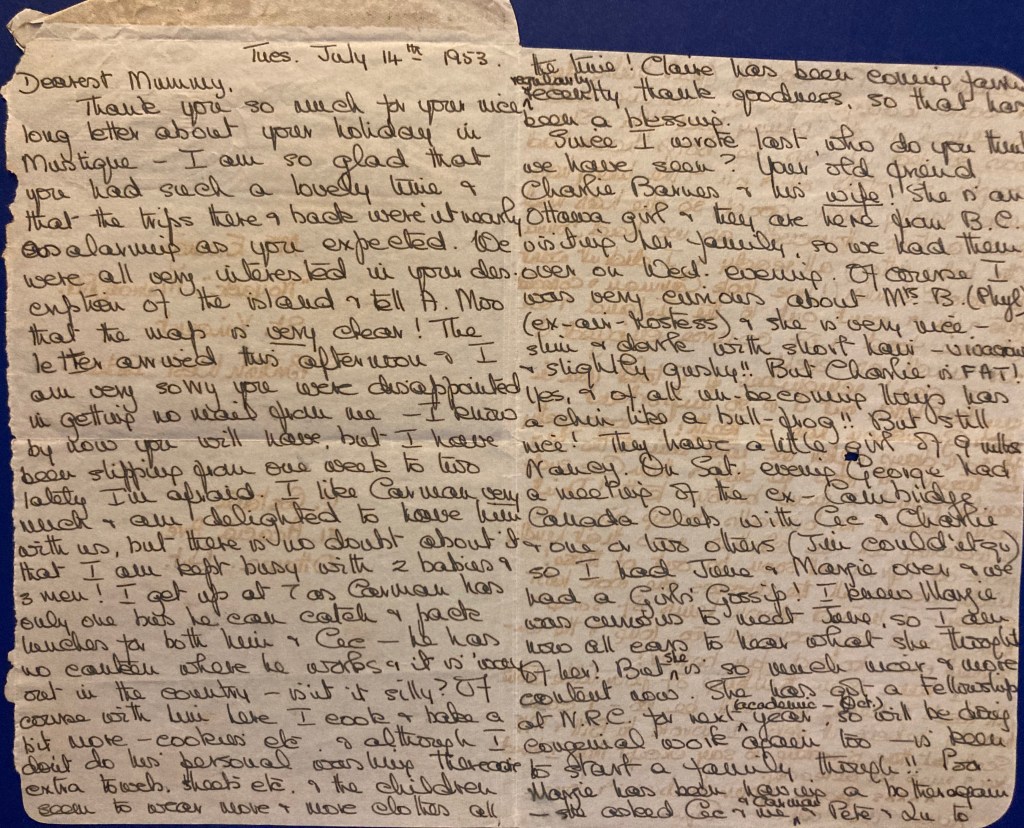 Tues. July 14th 1953.
Dearest Mummy,
Thank you so much for your nice
long letter about your holiday in
Mustique – I am so glad that
you had such a lovely time &
that the trips there & back were'nt nearly
as alarming as you expected. We
were all very interested in your des-
cription of the island & tell A. Moo
that the map is very clear! The
letter arrived this afternoon & I
am very sorry you were disappointed
in getting no mail from me – I know
by now you will have, but I have
been slipping from one week to two
lately I'm afraid. I like Carman very
much & am delighted to have him
with us, but there is no doubt about it
that I am kept busy with 2 babies &
3 men! I get up at 7 as Carman has
only one bus he can catch & pack
lunches for both him & Cec – he has
no canteen where he works & it is way
out in the country – is'nt it silly? Of
course with him here I cook & bake a
bit more – cookies etc. & although I
do'nt do his personal washing there are
extra towels, sheets etc. & the children
seem to wear more & more clothes all
the time! Claire has been coming fairly
regularly
thank goodness, so that has
been a blessing.
Since I wrote last, who do you think
we have seen? Your old friend
Charlie Barnes & his wife! She is an
Ottawa girl & they are here from B.C.
visiting her family, so we had them
over on Wed. evening. Of course I
was very curious about Mrs B. (Phyl)
(ex-air-hostess) & she is very nice –
slim & dark with short hair – vivacious
& slightly gushy!! But Charlie is FAT!
Yes, & of all un-becoming things has
a chin like a bull-frog!! But still
nice! They have a little girl of 9 mths
Nancy. On Sat. evening George had
a meeting of the ex-Cambridge
Canada Club with Cec & Charlie
& one or two others (Jim could'nt go)
so I had June & Margie over & we
had a Girls' Gossip! I knew Margie
was curious to meet June, so I am
now all ears to hear what she thought
of her! But she is so much nicer & more
content now. She has got a Fellowship
at N.R.C. for next (academic – Oct.) year, so will be doing
congenial work again too – is keen
to start a family though!! Poor
Margie has been having a bother again
– she asked Cec & me & Carman & Pete & Lu to